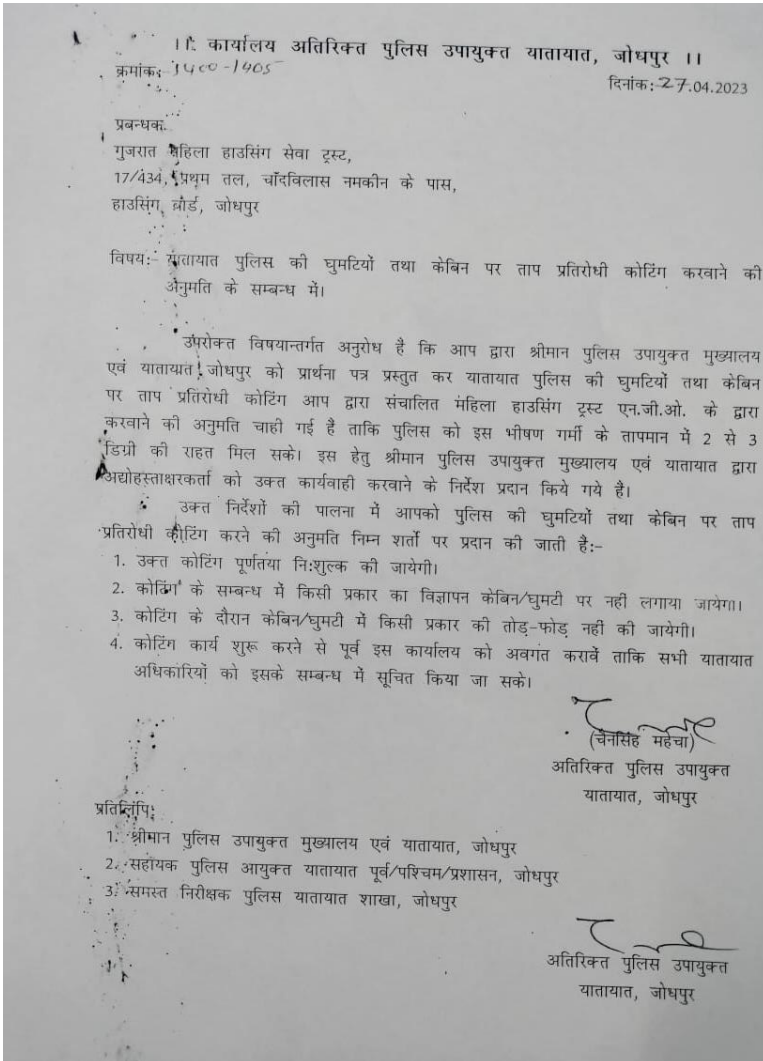 ।। कार्यालय अतिरिक्त पुलिस उपायुक्त यातायात, जोधपुर ।।
क्रमांकः 1400-1405
दिनांकः 27.04.2023
प्रबन्धक
गुजरात महिला हाउसिंग सेवा ट्रस्ट,
17/434, प्रथम तल, चाँदविलास नमकीन के पास,
हाउसिंग बोर्ड, जोधपुर
विषयः- यातायात पुलिस की घुमटियों तथा केबिन पर ताप प्रतिरोधी कोटिंग करवाने की
अनुमति के सम्बन्ध में।
उपरोक्त विषयान्तर्गत अनुरोध है कि आप द्वारा श्रीमान पुलिस उपायुक्त मुख्यालय
एवं यातायात जोधपुर को प्रार्थना पत्र प्रस्तुत कर यातायात पुलिस की घुमटियों तथा केबिन
पर ताप प्रतिरोधी कोटिंग आप द्वारा संचालित महिला हाउसिंग ट्रस्ट एन.जी.ओ. के द्वारा
करवाने की अनुमति चाही गई है ताकि पुलिस को इस भीषण गर्मी के तापमान में 2 से 3
डिग्री की राहत मिल सके। इस हेतु श्रीमान पुलिस उपायुक्त मुख्यालय एवं यातायात द्वारा
अद्योहस्ताक्षरकर्ता को उक्त कार्यवाही करवाने के निर्देश प्रदान किये गये है।
उक्त निर्देशों की पालना में आपको पुलिस की घुमटियों तथा केबिन पर ताप
प्रतिरोधी कोटिंग करने की अनुमति निम्न शर्तो पर प्रदान की जाती हैः-
1. उक्त कोटिंग पूर्णतया निःशुल्क की जायेगी।
2. कोटिंग के सम्बन्ध में किसी प्रकार का विज्ञापन केबिन/घुमटी पर नहीं लगाया जायेगा।
3. कोटिंग के दौरान केबिन/घुमटी में किसी प्रकार की तोड़-फोड़ नही की जायेगी।
4. कोटिंग कार्य शुरू करने से पूर्व इस कार्यालय को अवगत करावें ताकि सभी यातायात
अधिकारियों को इसके सम्बन्ध में सूचित किया जा सके।
(चैनसिंह महेचा)
अतिरिक्त पुलिस उपायुक्त
यातायात, जोधपुर
प्रतिलिपिः
1. श्रीमान पुलिस उपायुक्त मुख्यालय एवं यातायात, जोधपुर
2. सहायक पुलिस आयुक्त यातायात पूर्व/पश्चिम/प्रशासन, जोधपुर
3. समस्त निरीक्षक पुलिस यातायात शाखा, जोधपुर
अतिरिक्त पुलिस उपायुक्त
यातायात, जोधपुर